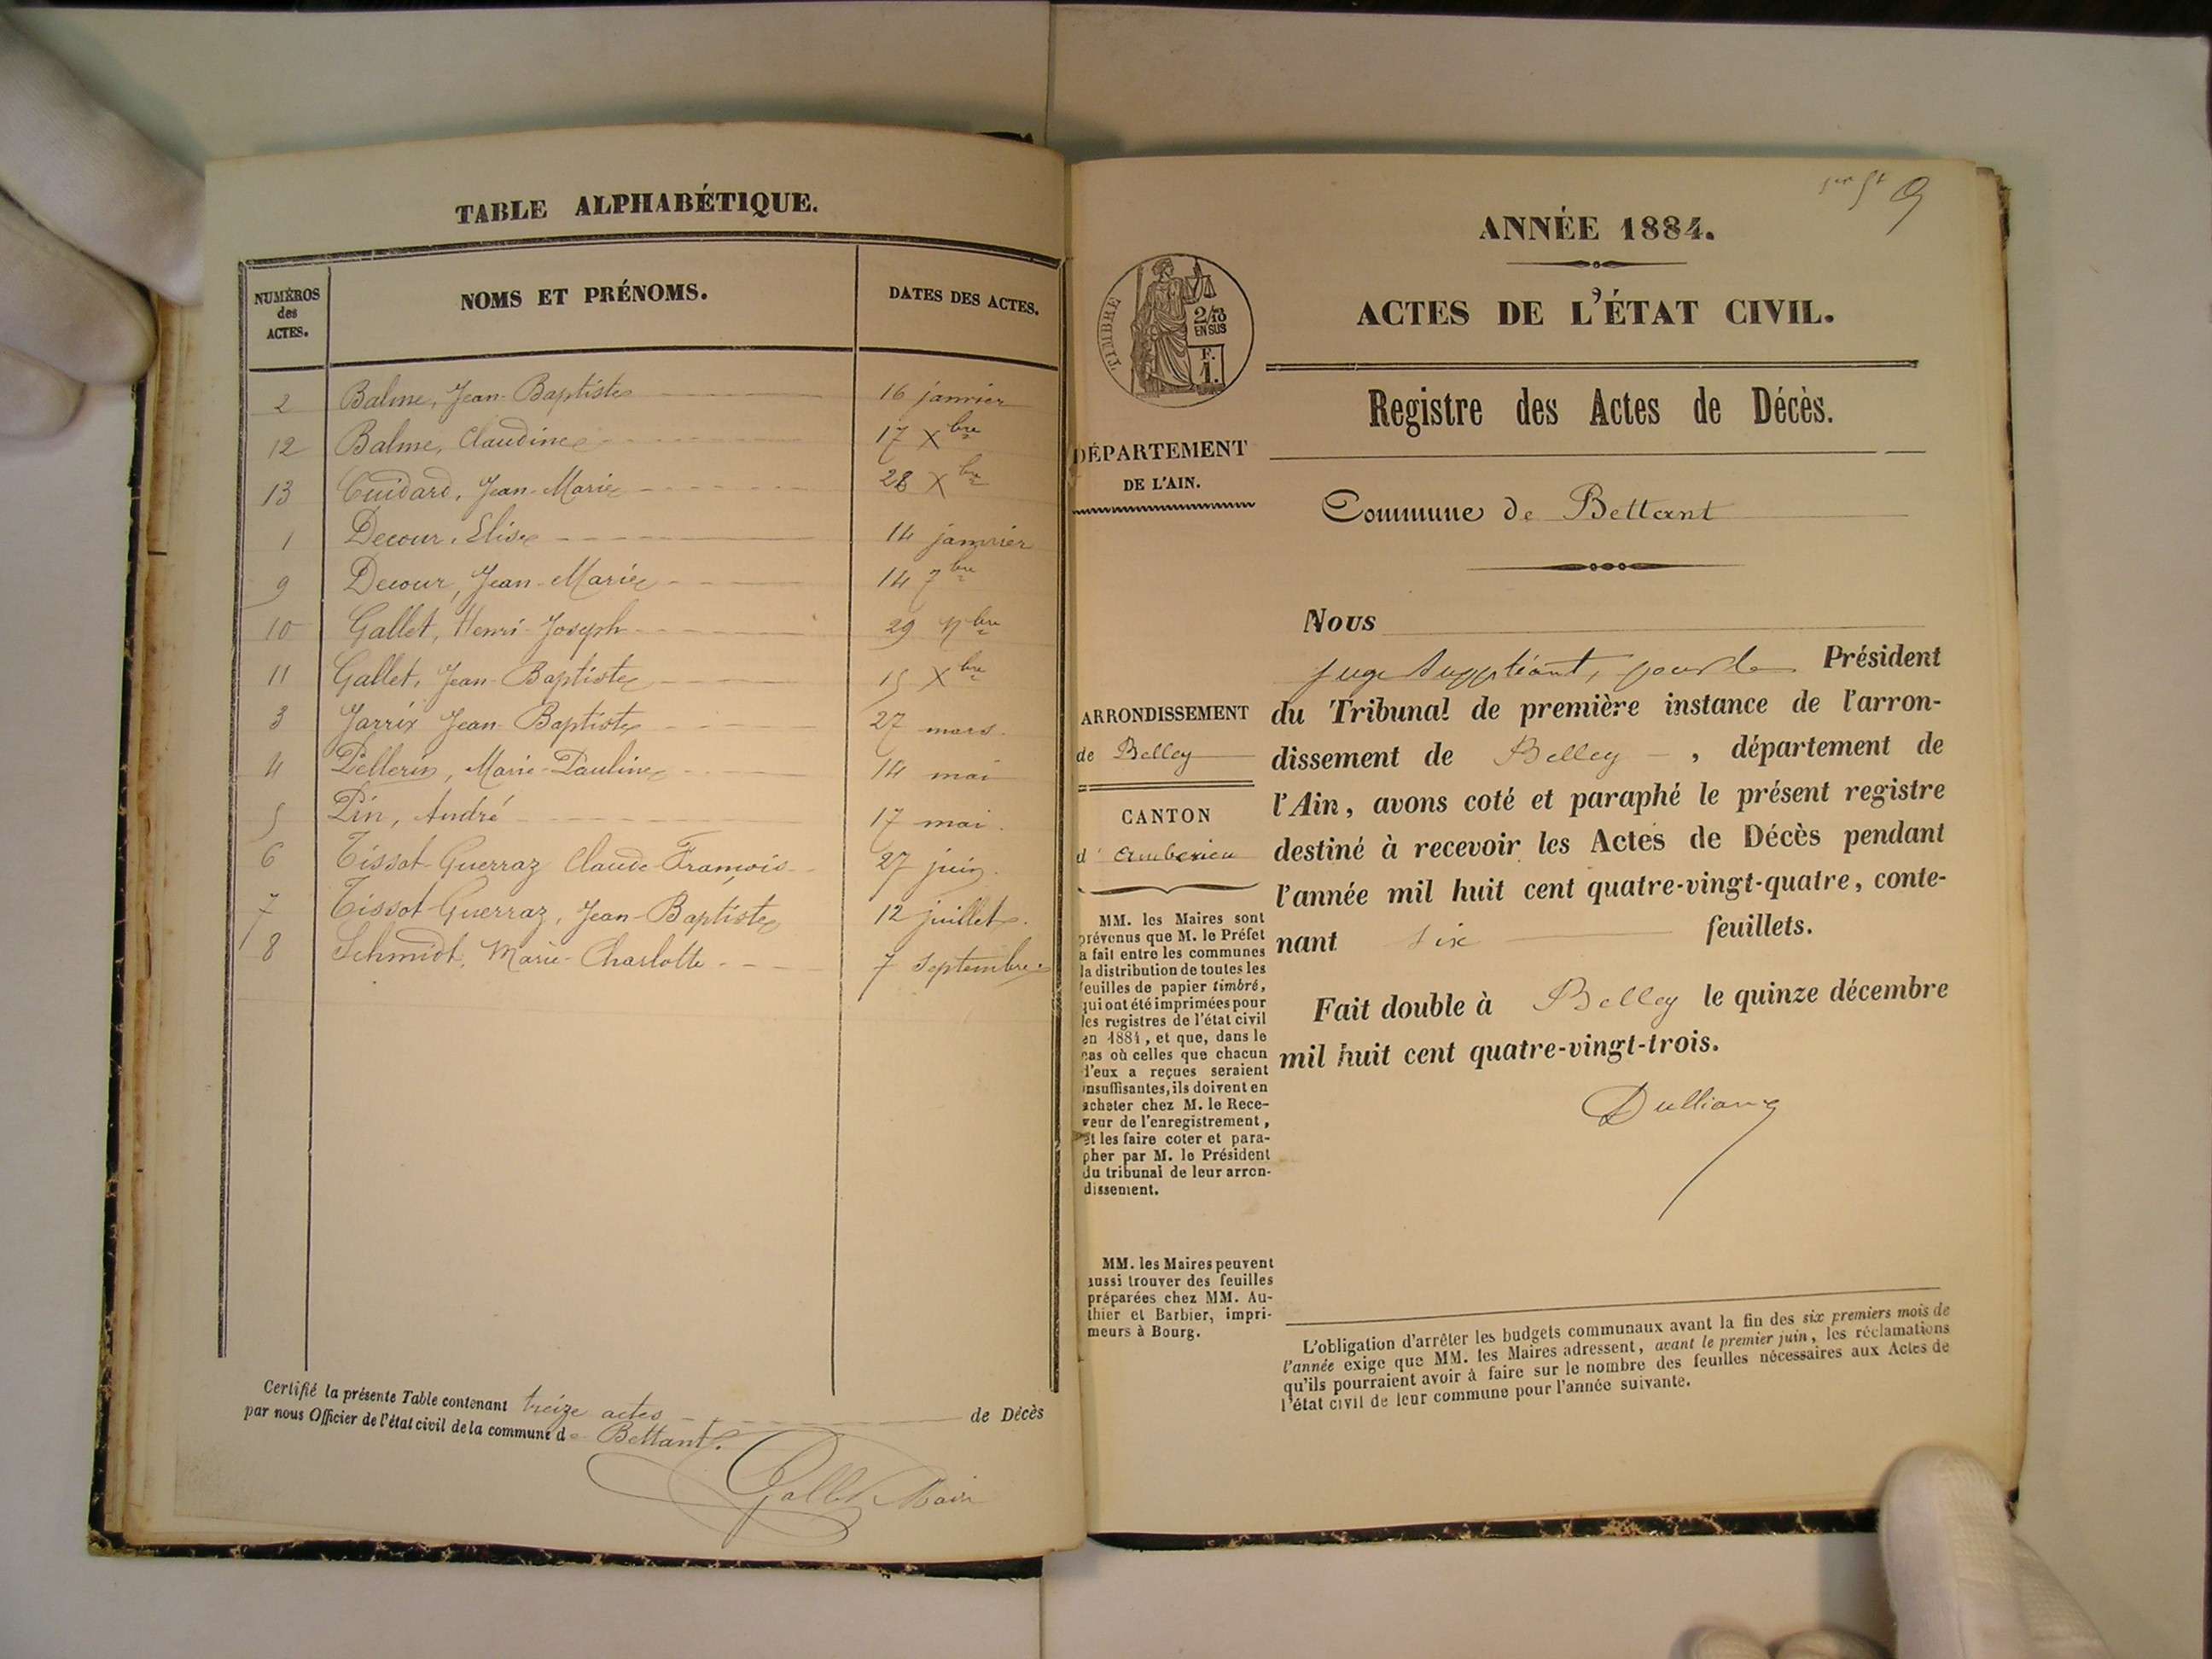 TABLE ALPHABÉTIQUE.
NUMÉROS des ACTES. NOMS ET PRÉNOMS. DATES DES ACTES.
2 Balme, Jean-Baptiste 16 janvier
12 Balme, Claudine 17 Xbre
13 Cuidard, Jean-Marie 28 Xbre
1 Decour, Elise 14 janvier
9 Decour, Jean-Marie 14 7bre
10 Gallet, Henri-Joseph 29 Nbre
11 Gallet, Jean-Baptiste 15 Xbre
3 Jarrix Jean-Baptiste 27 mars.
4 Pellerin, Marie-Pauline 14 mai
5 Pin, André 17 mai.
6 Tissot-Guerraz Claude-François 27 juin.
7 Tissot-Guerraz, Jean-Baptiste 12 juillet.
8 Schmidt, Marie-Charlotte 7 septembre.
Certifié la présente Table contenant treize actes de Décès
par nous Officier de l'état civil de la commune de Bettant.
Gallet Maire
9
ANNÉE 1884.
ACTES DE L'ÉTAT CIVIL.
TIMBRE
2/10
EN SUS
F.
1.
Registre des Actes de Décès.
DÉPARTEMENT
DE L'AIN.
Commune de Bettant
ARRONDISSEMENT
de Belley
CANTON
d' Ambérieu
MM. les Maires sont
prévenus que M. le Préfet
a fait entre les communes
la distribution de toutes les
feuilles de papier timbré,
qui ont été imprimées pour
les registres de l'état civil
en 1884, et que, dans le
cas où celles que chacun
d'eux a reçues seraient
insuffisantes, ils doivent en
acheter chez M. le Rece-
veur de l'enregistrement,
et les faire coter et para-
pher par M. le Président
du tribunal de leur arron-
dissement.
MM. les Maires peuvent
aussi trouver des feuilles
préparées chez MM. Au-
thier et Barbier, impri-
meurs à Bourg.
Nous
juge suppléant, pour le Président
du Tribunal de première instance de l'arron-
dissement de Belley, département de
l'Ain, avons coté et paraphé le présent registre
destiné à recevoir les Actes de Décès pendant
l'année mil huit cent quatre-vingt-quatre, conte-
nant six feuillets.
Fait double à Belley le quinze décembre
mil huit cent quatre-vingt-trois.
L'obligation d'arrêter les budgets communaux avant la fin des six premiers mois de
l'année exige que MM. les Maires adressent, avant le premier juin, les réclamations
qu'ils pourraient avoir à faire sur le nombre des feuilles nécessaires aux Actes de
l'état civil de leur commune pour l'année suivante.